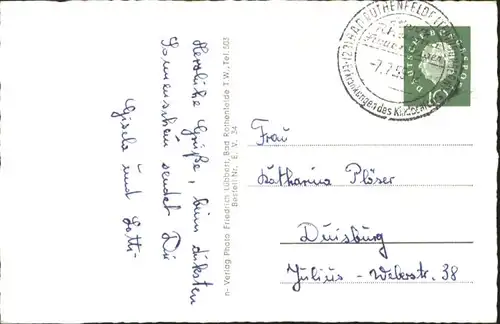 Herzliche Grüße, beim dicksten
Sonnenschein sendet Dir
Gisela und Lothi
n- Verlag Photo Friedrich Lübbert, Bad Rothenfelde T.W., Tel. 503
Bestell Nr. E. V. 34
(23) BAD ROTHENFELDE
-7.7.59
DEUTSCHE BUNDESPOST
Frau
Katharina Plöser
Duisburg
Julius-Weberstr. 38